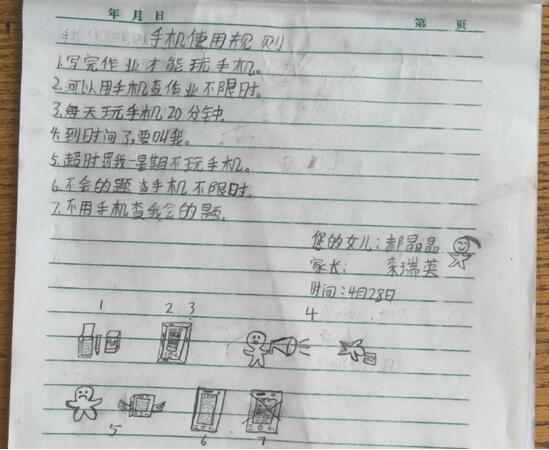 年 月 日 第 页
手机使用规则
1.写完作业才能玩手机。
2.可以用手机查作业不限时。
3.每天玩手机20分钟.
4.到时间了,要叫我。
5.超时罚我一星期不玩手机。
6.不会的题查手机不限时。
7.不用手机查我会的题.
您的女儿:郝晶晶
家长: 瑞英
时间:4月28日
1 2 3 4
5 6 7